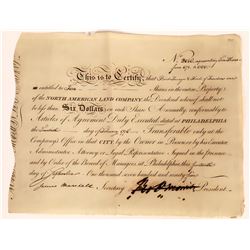 No
This is to Certify, that
is entitled to Two Shares in the entire Property
of the NORTH AMERICAN LAND COMPANY, the Dividend whereof shall not
be less than Six Dollars on each Share Annually, conformably to
Articles of Agreement Duly Executed, dated at PHILADELPHIA
the day of February 1795, Transferable only at the
Company's Office in that CITY, by the Owner in Person or by his Executor
Administrator Attorney or Legal Representative. Signed in the presence
and by Order of the Board of Managers at Philadelphia this
day of One thousand seven hundred and ninety
James Marshall Secretary President.